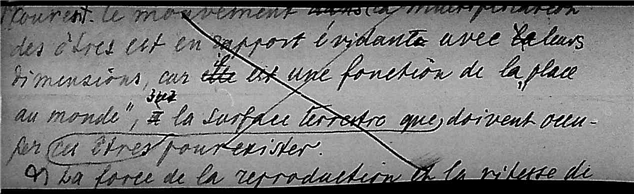 couvent. le mouvement dans la multiplication
des êtres est en rapport évidante avec la leurs
dimensions, car elle il est une fonction de la "place
au monde", sur la surface terrestre que doivent occu-
per ces êtres pour exister.
La force de la reproduction et la vitesse de